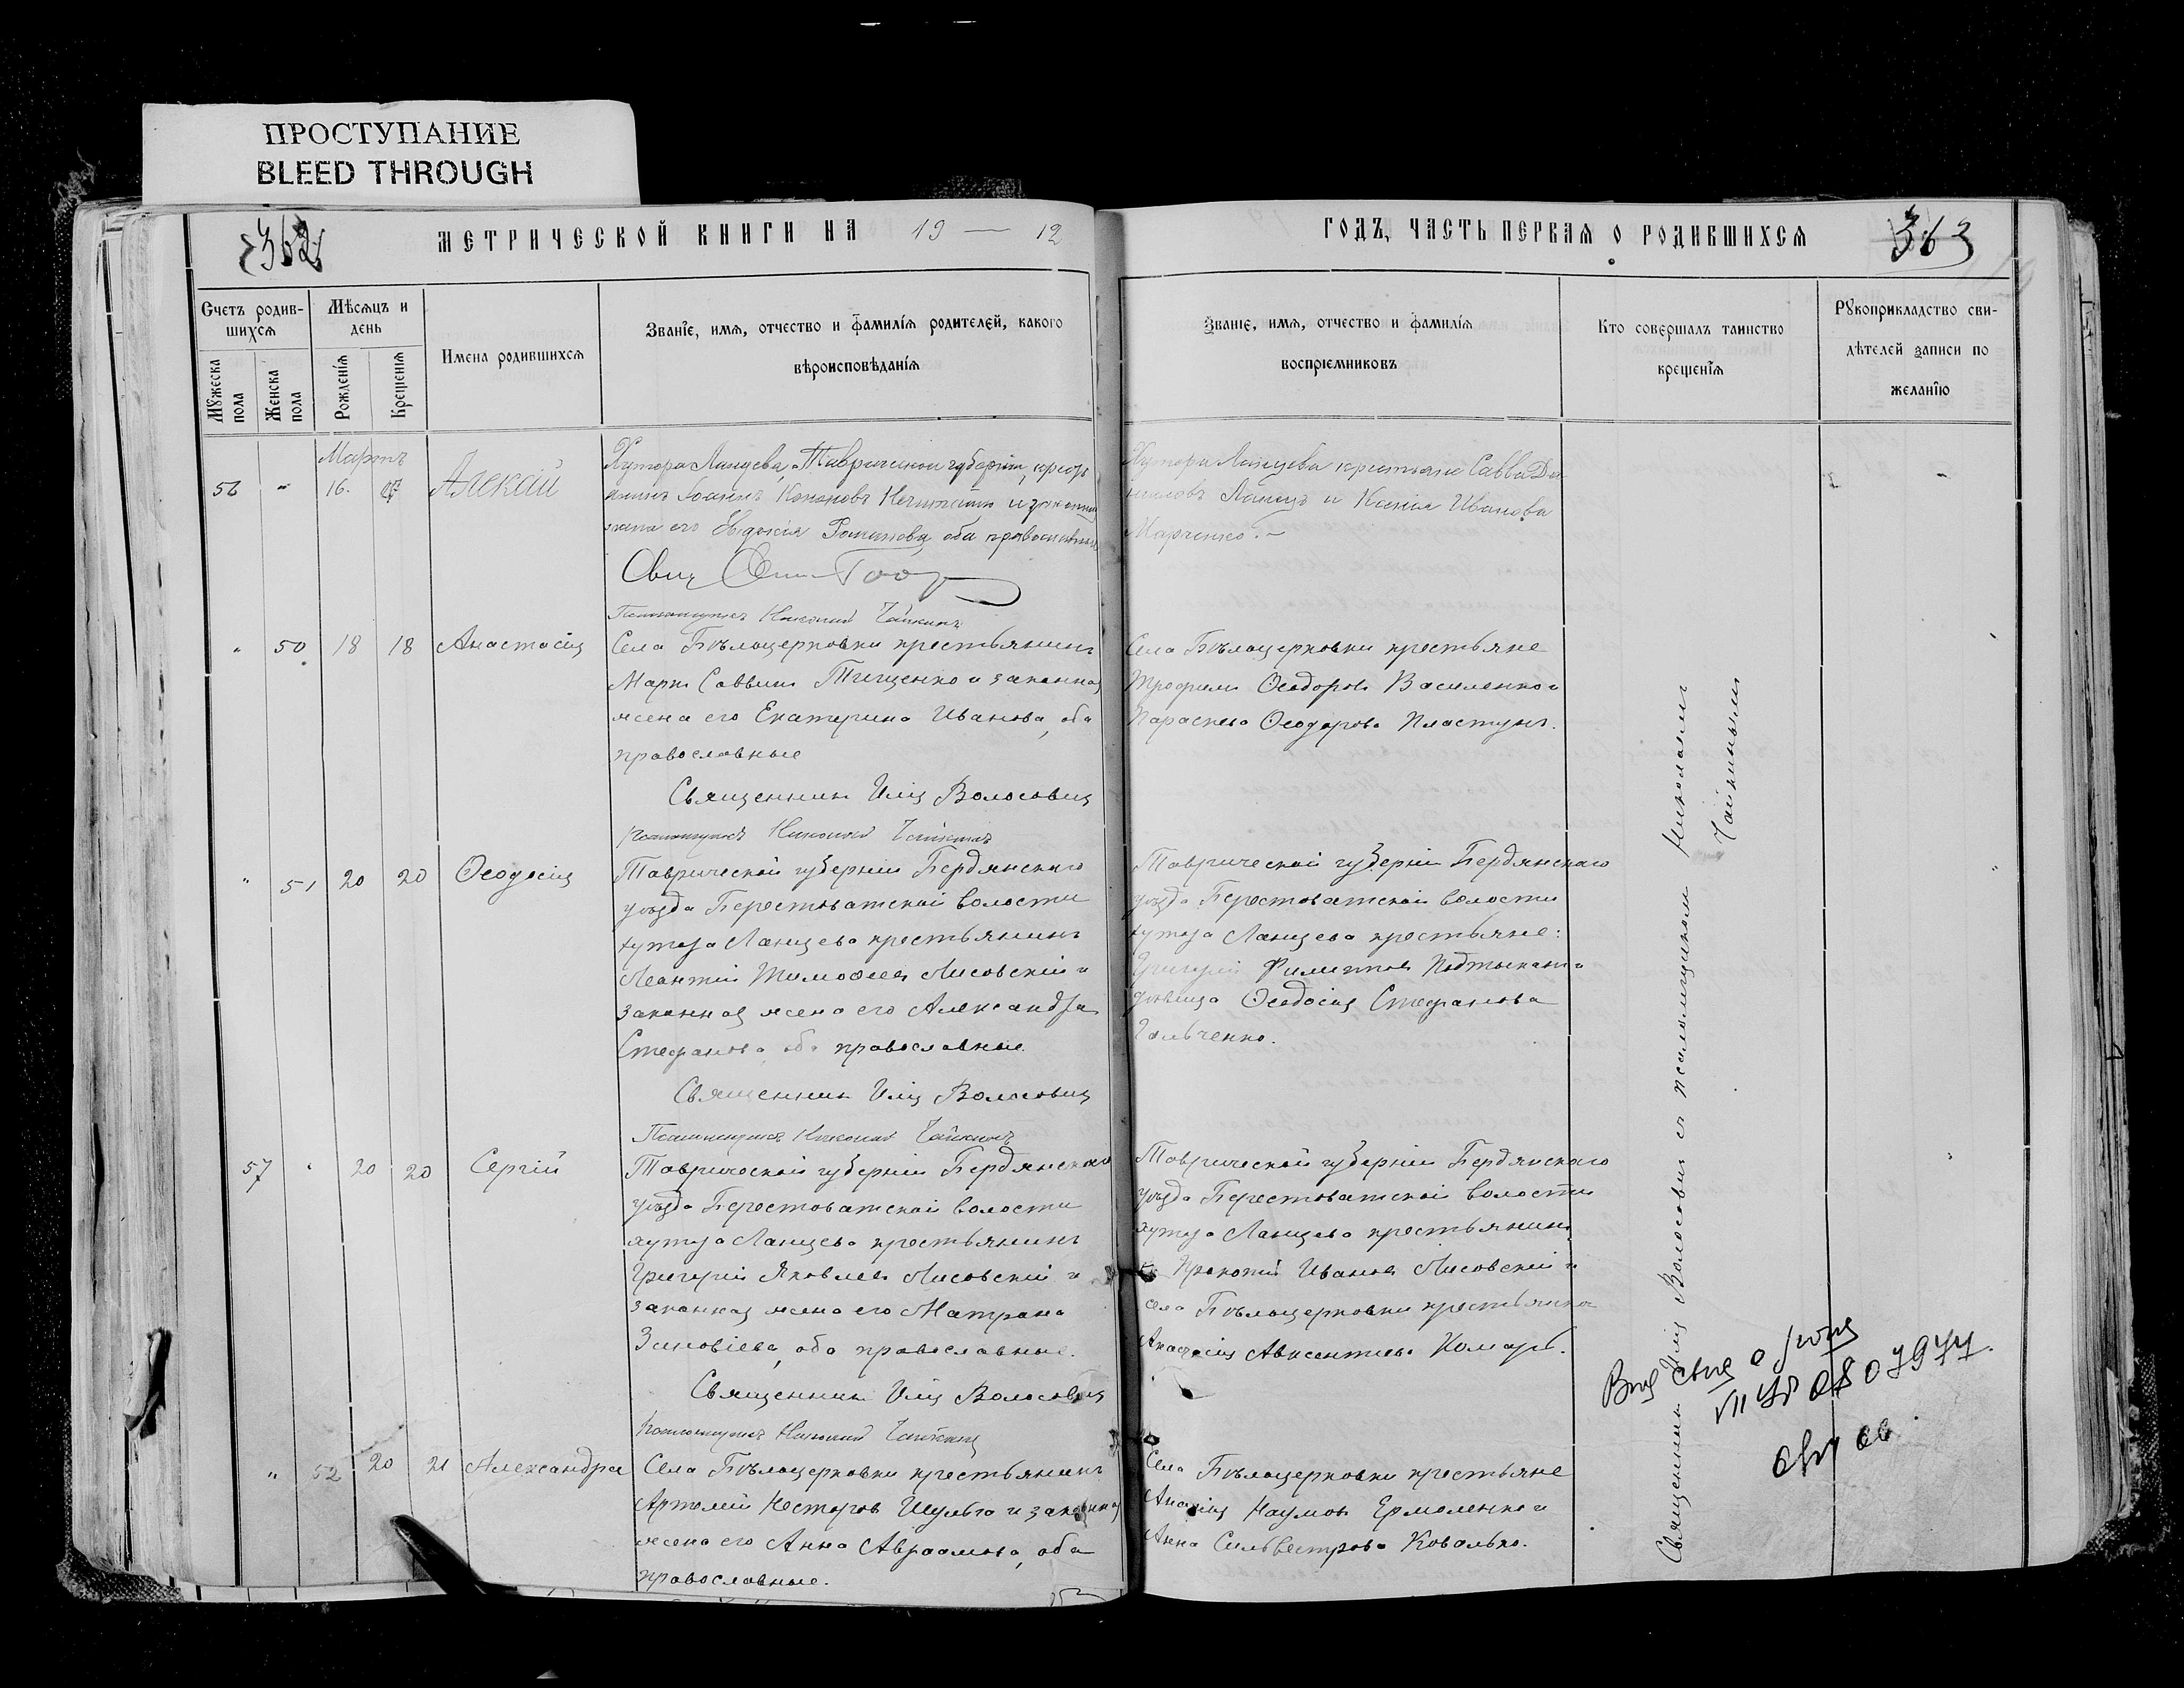 ПРОСТУПАНИЕ
BLEED THROUGH
362
МЕТРИЧЕСКОЙ КНИГИ НА 19 — 12
ГОДЪ, ЧАСТЬ ПЕРВАЯ О РОДИВШИХСЯ
363
Счетъ родив-
шихся
Мужеска пола
Женска пола
Мѣсяцъ и
день
Рожденія
Крещенія
Имена родившихся
Званіе, имя, отчество и фамилія родителей, какого
вѣроисповѣданія
Званіе, имя, отчество и фамилія
воспріемниковъ
Кто совершалъ таинство
крещенія
Рукоприкладство сви-
дѣтелей записи по
желанію
Мартъ
56 " 16. Алексій
Хутора Ланцева, Таврической губерніи, кресть
янинъ Іоаннъ Кононовъ и законная
жена его Евдокія Романова, оба православные
Псаломщикъ Николай Чайкинъ
Хутора Ланцева крестьяне Савва Да
ниловъ Ланецъ и Ксенія Иванова
Марченко.
" 50 18 18 Анастасія
Села Бѣлоцерковки крестьянинъ
Маркъ Саввинъ Тищенко и законная
жена его Екатерина Иванова, оба
православные
Священникъ Илія Волосовичъ
Псаломщикъ Николай Чайкинъ
Села Бѣлоцерковки крестьяне
Трофимъ Ѳеодоровъ Василенко и
Параскева Ѳеодорова Пластунъ.
" 51 20 20 Ѳеодосія
Таврической губерніи Бердянскаго
уѣзда Берестоватской волости
хутора Ланцева крестьянинъ
Леонтій Тимоѳеевъ Лисовскій и
законная жена его Александра
Стефанова, оба православные.
Священникъ Илія Волосовичъ
Псаломщикъ Николай Чайкинъ
Таврической губерніи Бердянскаго
уѣзда Берестоватской волости
хутора Ланцева крестьяне:
Григорій Филипповъ и
дѣвица Ѳеодосія Стефанова
57 " 20 20 Сергій
Таврической губерніи Бердянскаго
уѣзда Берестоватской волости
хутора Ланцева крестьянинъ
Григорій Яковлевъ Лисовскій и
законная жена его Матрона
Зиновіева, оба православные.
Священникъ Илія Волосовичъ
Псаломщикъ Николай Чайкинъ
Таврической губерніи Бердянскаго
уѣзда Берестоватской волости
хутора Ланцева крестьянинъ
Прокопій Ивановъ Лисовскій и
села Бѣлоцерковки крестьянка
Анастасія Авксентіева Комаръ.
" 52 20 21 Александра
Села Бѣлоцерковки крестьянинъ
Артемій Несторовъ Шульга и законная
жена его Анна Авраамова, оба
православные.
Села Бѣлоцерковки крестьяне
Ананія Наумовъ Ермоленко и
Анна Сильвестрова Ковалько.
Священникъ Илія Волосовичъ съ псаломщикомъ Николаемъ
Чайкинымъ